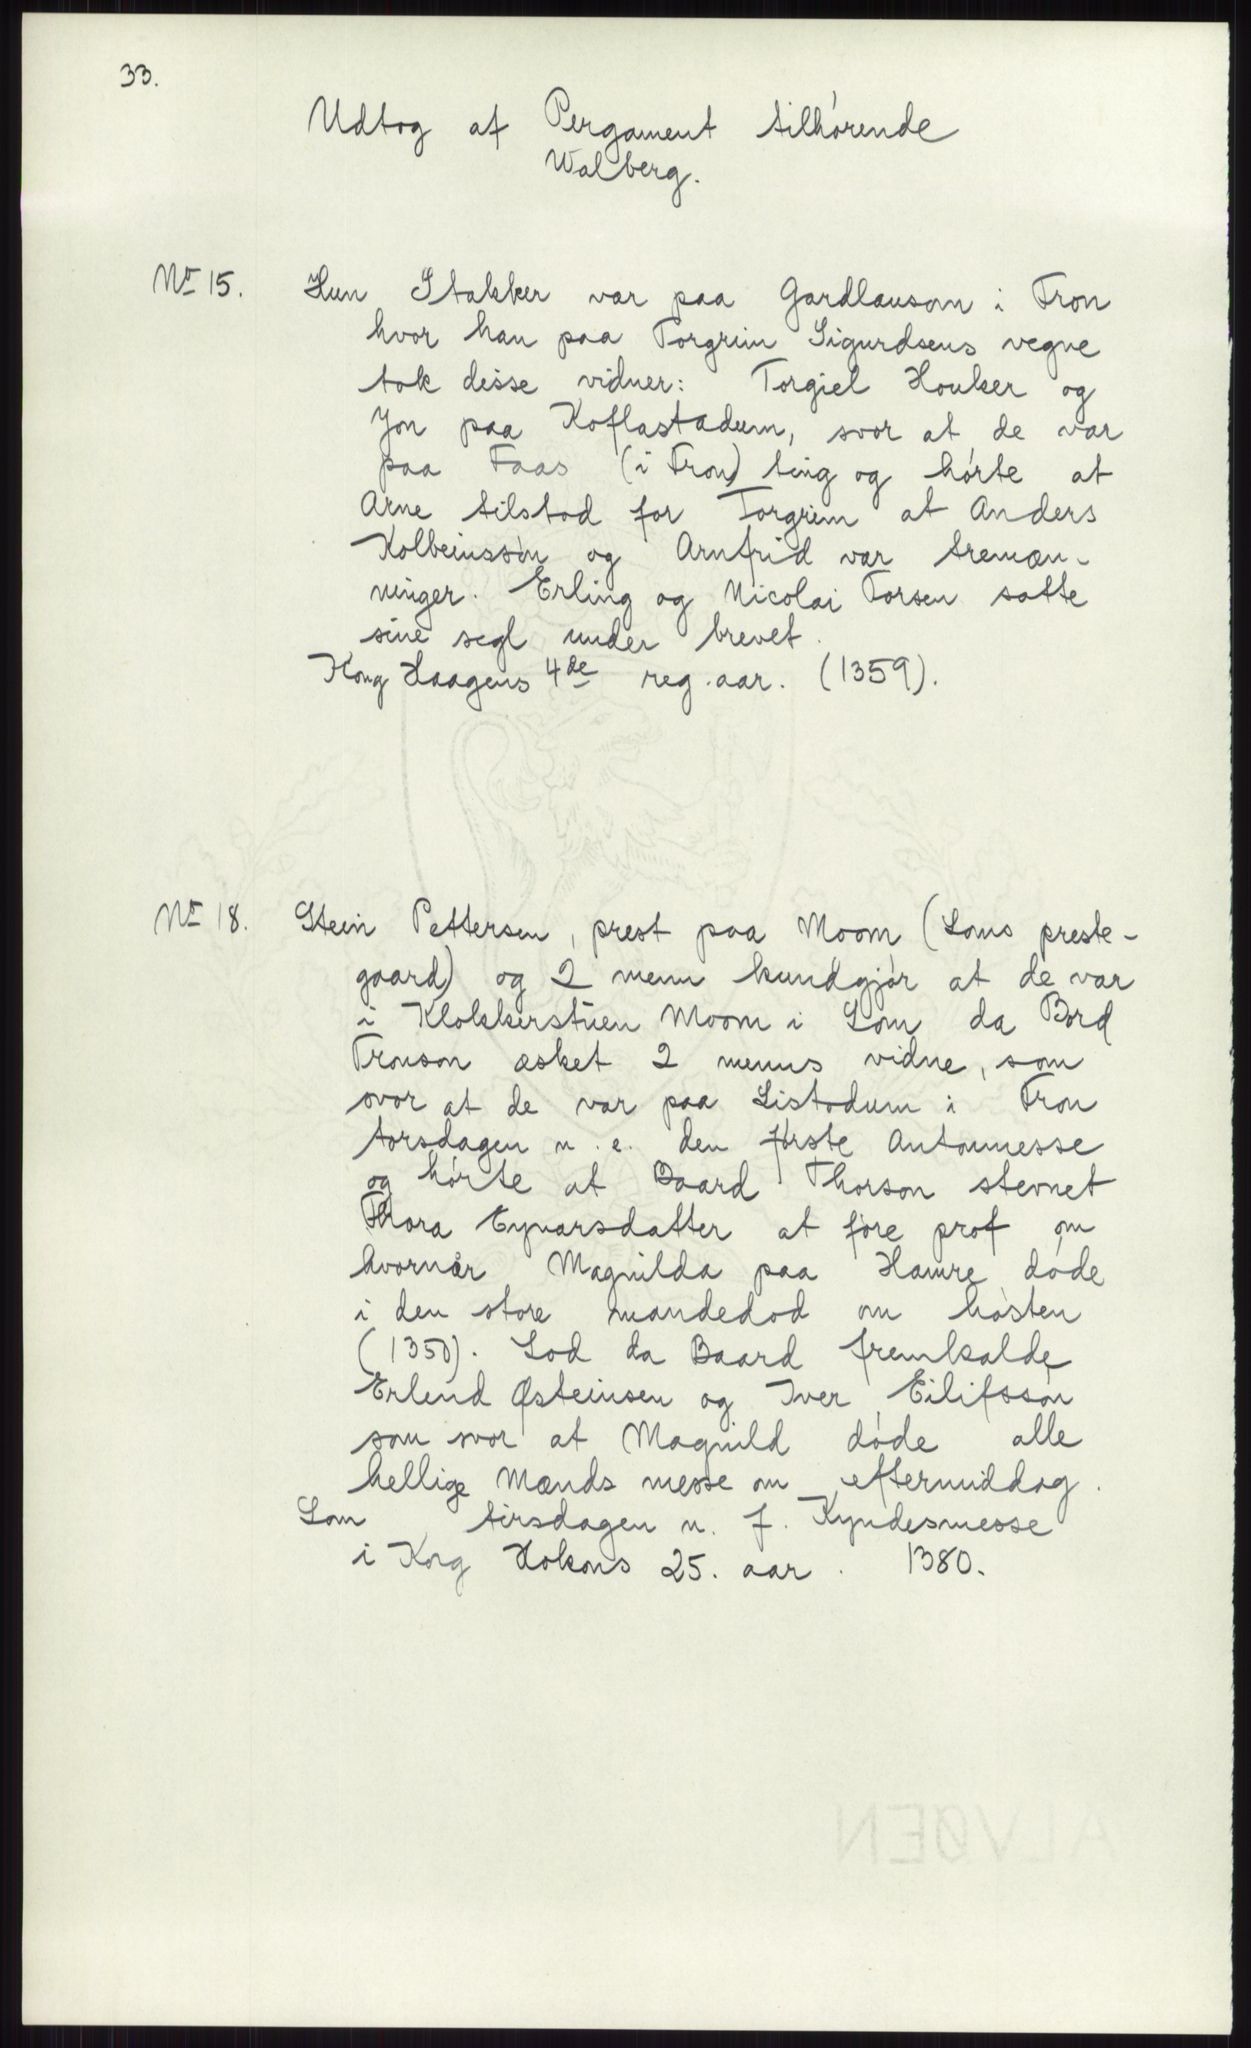 33.
Udtog af Pergament tilhørende
Walberg.
Nr 15. Hun Stakker var paa Gardlausom i Fron
hvor han paa Torgrim Sigurdsens vegne
tok disse vidner: Torgiel Houker og
Jon paa Koflastadum, svor at de var
paa Faas (i Fron) ting og hørte at
Arne tilstod for Torgrim at Anders
Kolbeinssøn og Arnfrid var tremæn-
ninger. Erling og Nicolai Torsen satte
sine segl under brevet.
Kong Haagens 4de reg. aar. (1359).
Nr 18. Stein Pettersen, prest paa Moom (Loms preste-
gaard) og 2 menn kundgjør at de var
i Klokkerstuen Moom i Lom da Bord
Tronson æsket 2 menns vidne, som
svor at de var paa Listodum i Fron
torsdagen n. e. den første Antonmesse
og hørte at Baard Thorson stevnet
Thora Eynarsdatter at føre prof om
hvornår Magnilda paa Hamre døde
i den store mandedød om høsten
(1350). Lod da Baard fremkalde
Erlend Østeinsen og Iver Eilifssøn
som svor at Magnild døde alle
hellige Mænds messe om eftermiddag.
Lom tirsdagen n. f. Kyndesmesse
i Kong Hokons 25. aar. 1380.
ALVØEN